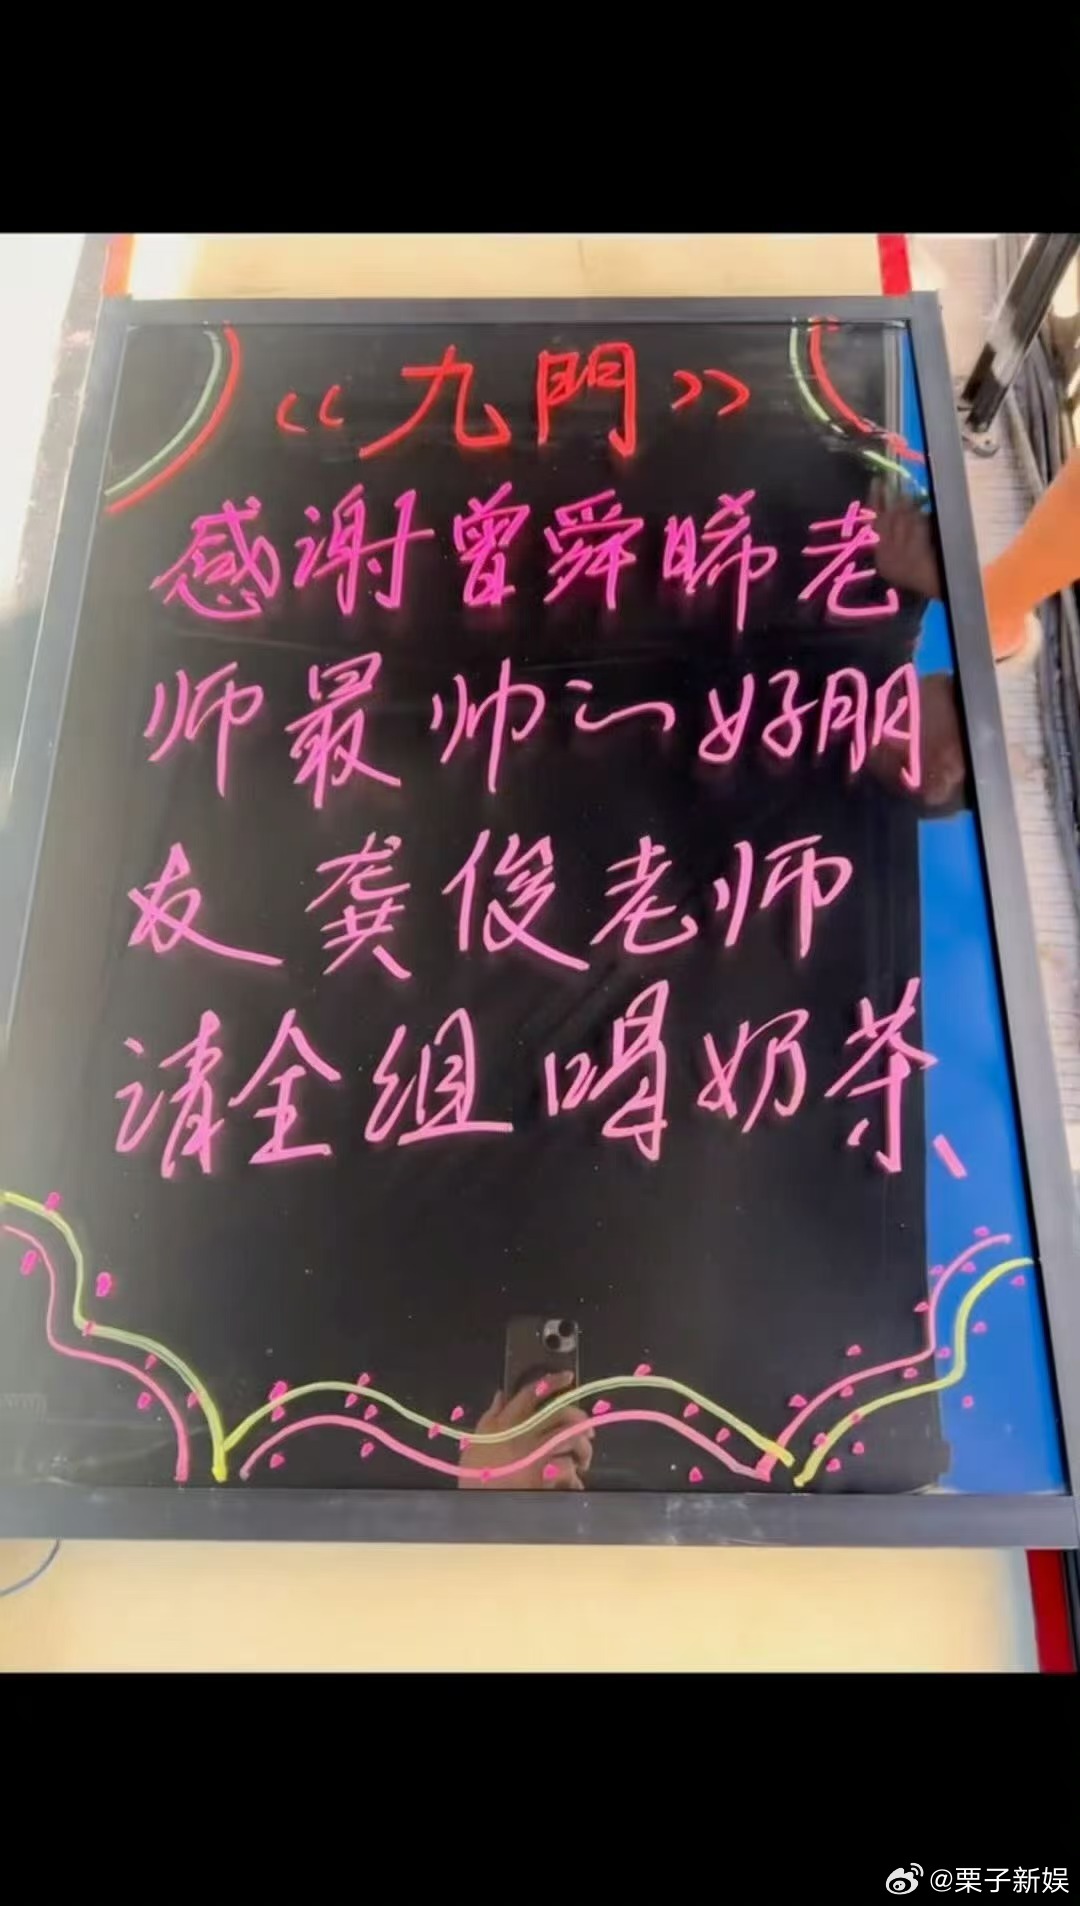 《九門》
感谢曾舜晞老
师最帅的好朋
友龚俊老师
请全组喝奶茶、
@栗子新娱